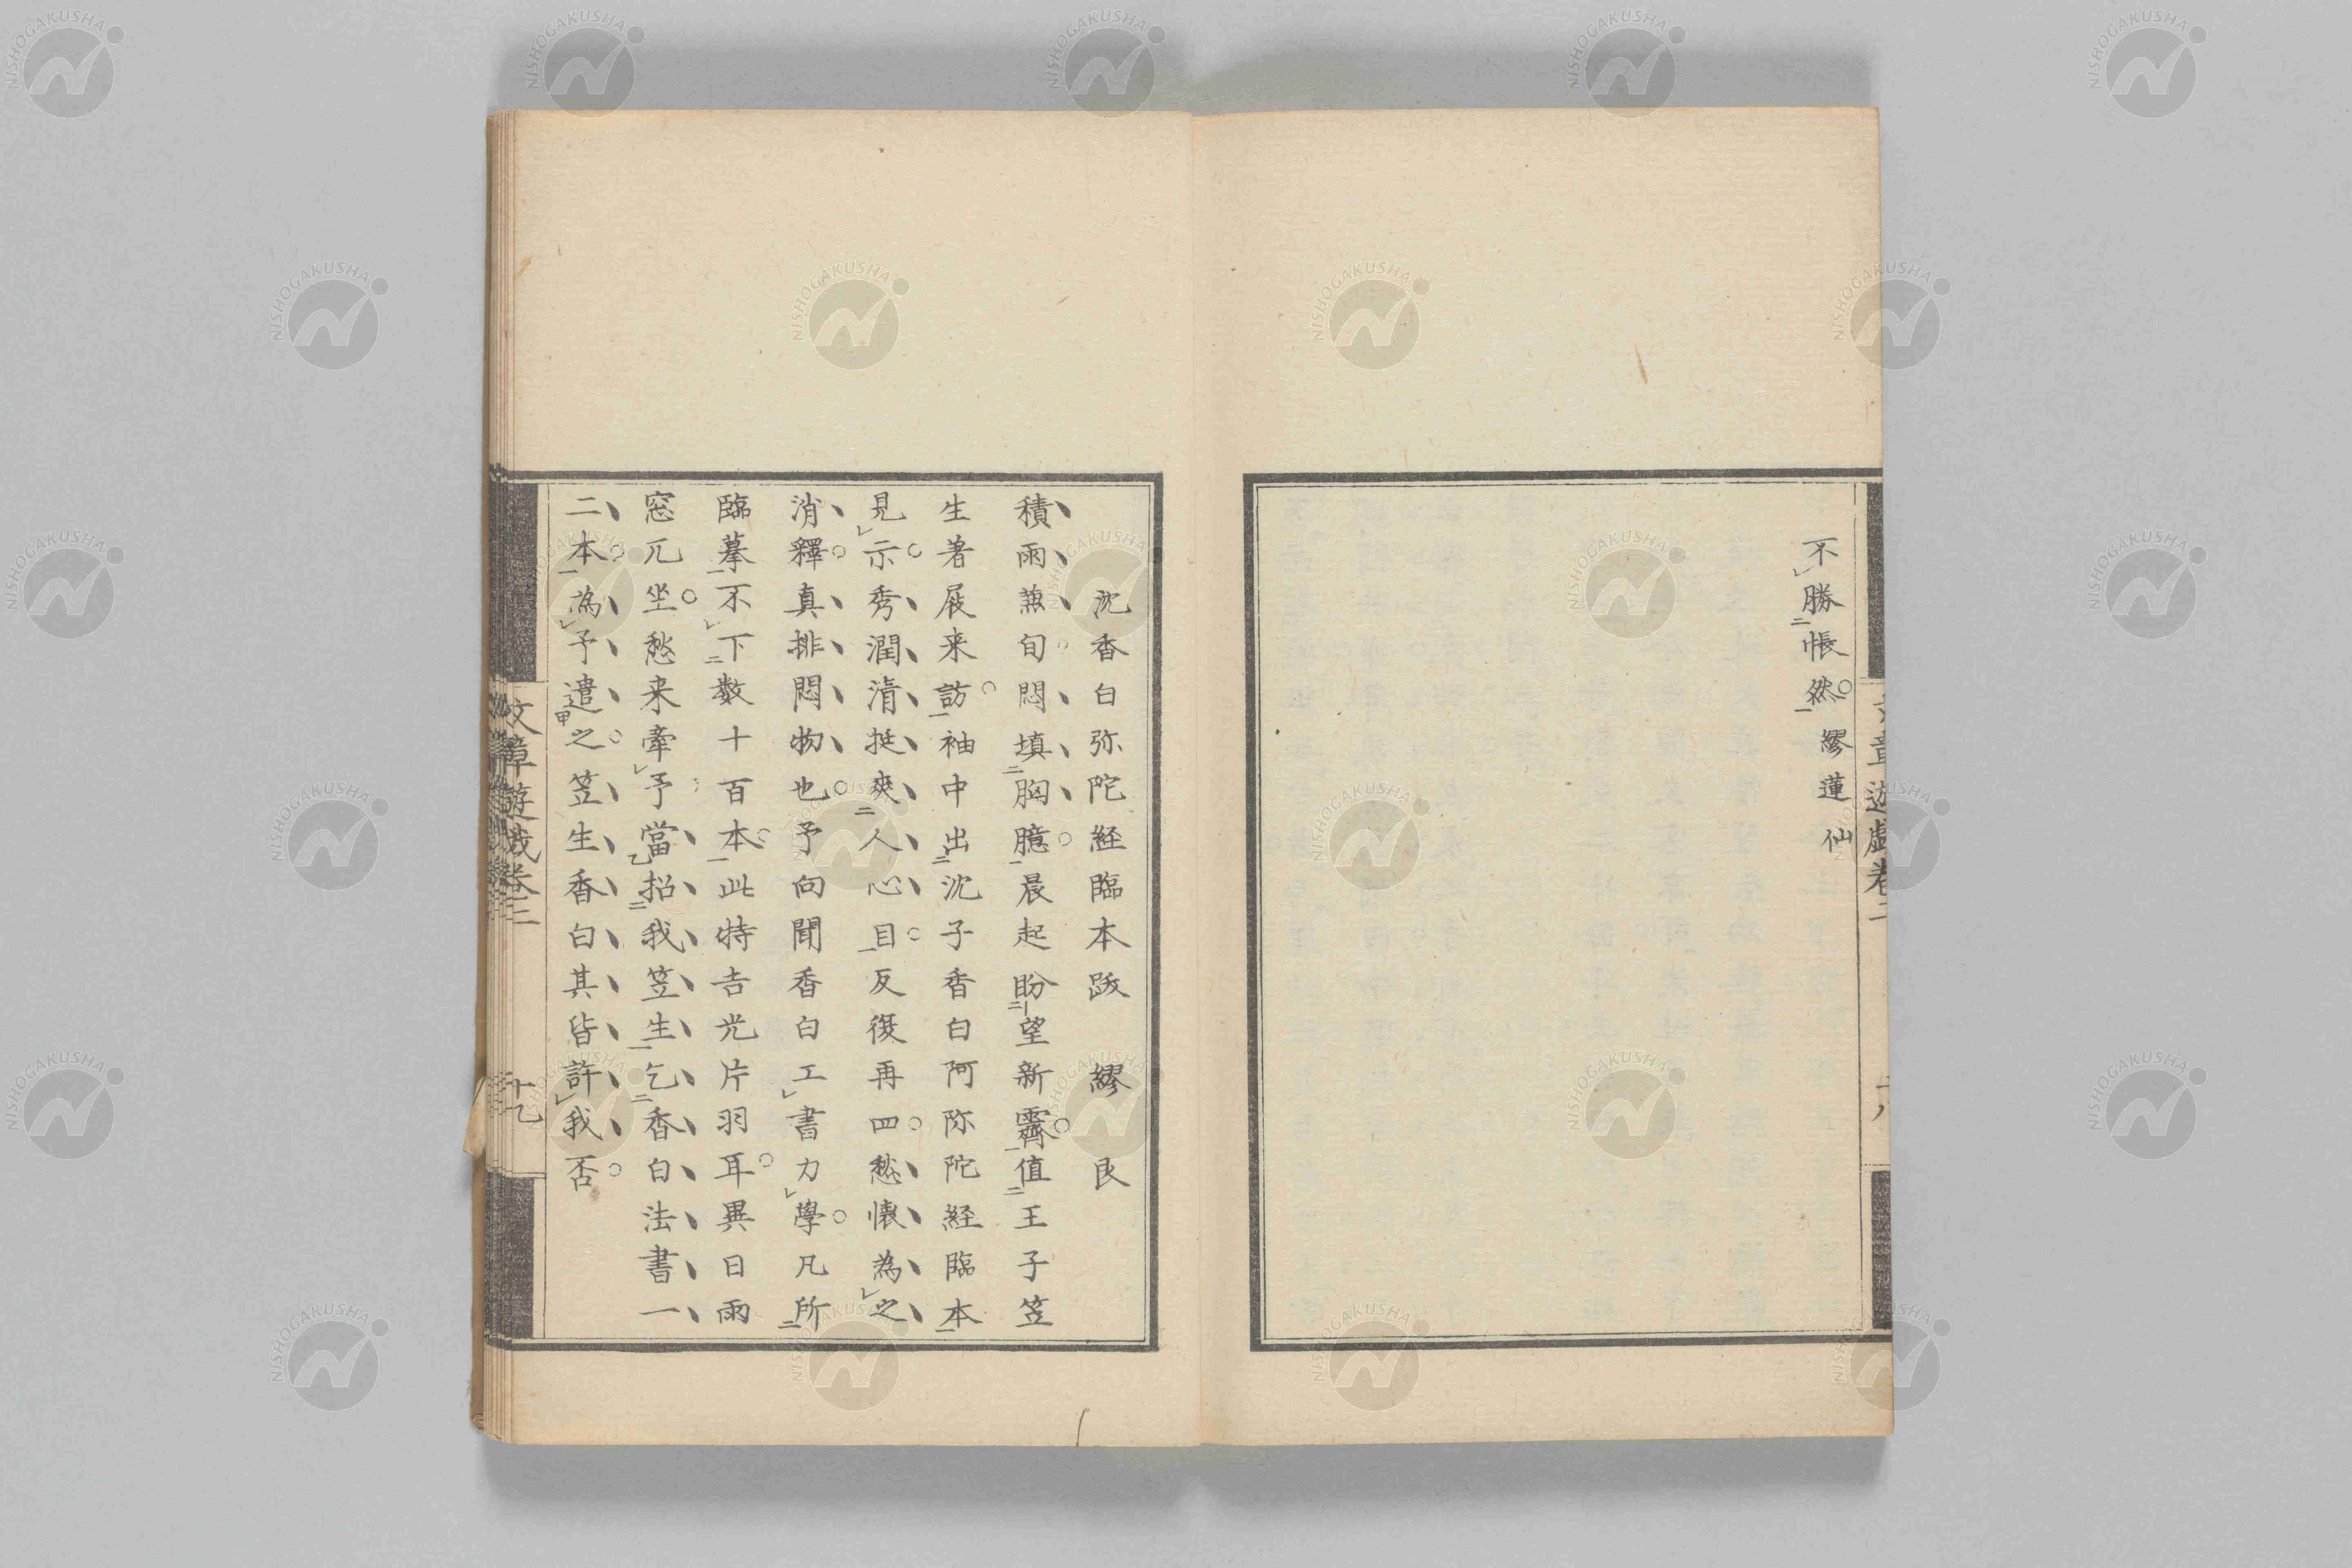 不勝悵然繆蓮仙
沈香白弥陀経臨本跋 繆艮
積雨兼旬悶塡胸臆晨起盼望新霽値王子笠
生著屐来訪袖中出沈子香白阿弥陀経臨本
見示秀潤清挺爽人心目反復再四愁懐為之
消釋真排悶物也予向聞香白工書力學凡所
臨摹不下数十百本此特吉光片羽耳異日雨
窓兀坐愁来牽予當招我笠生乞香白法書一
二本為予遣之笠生香白其皆許我否
文章遊戯巻二
十八
文章遊戯巻二
十九
NISHOGAKUSHA